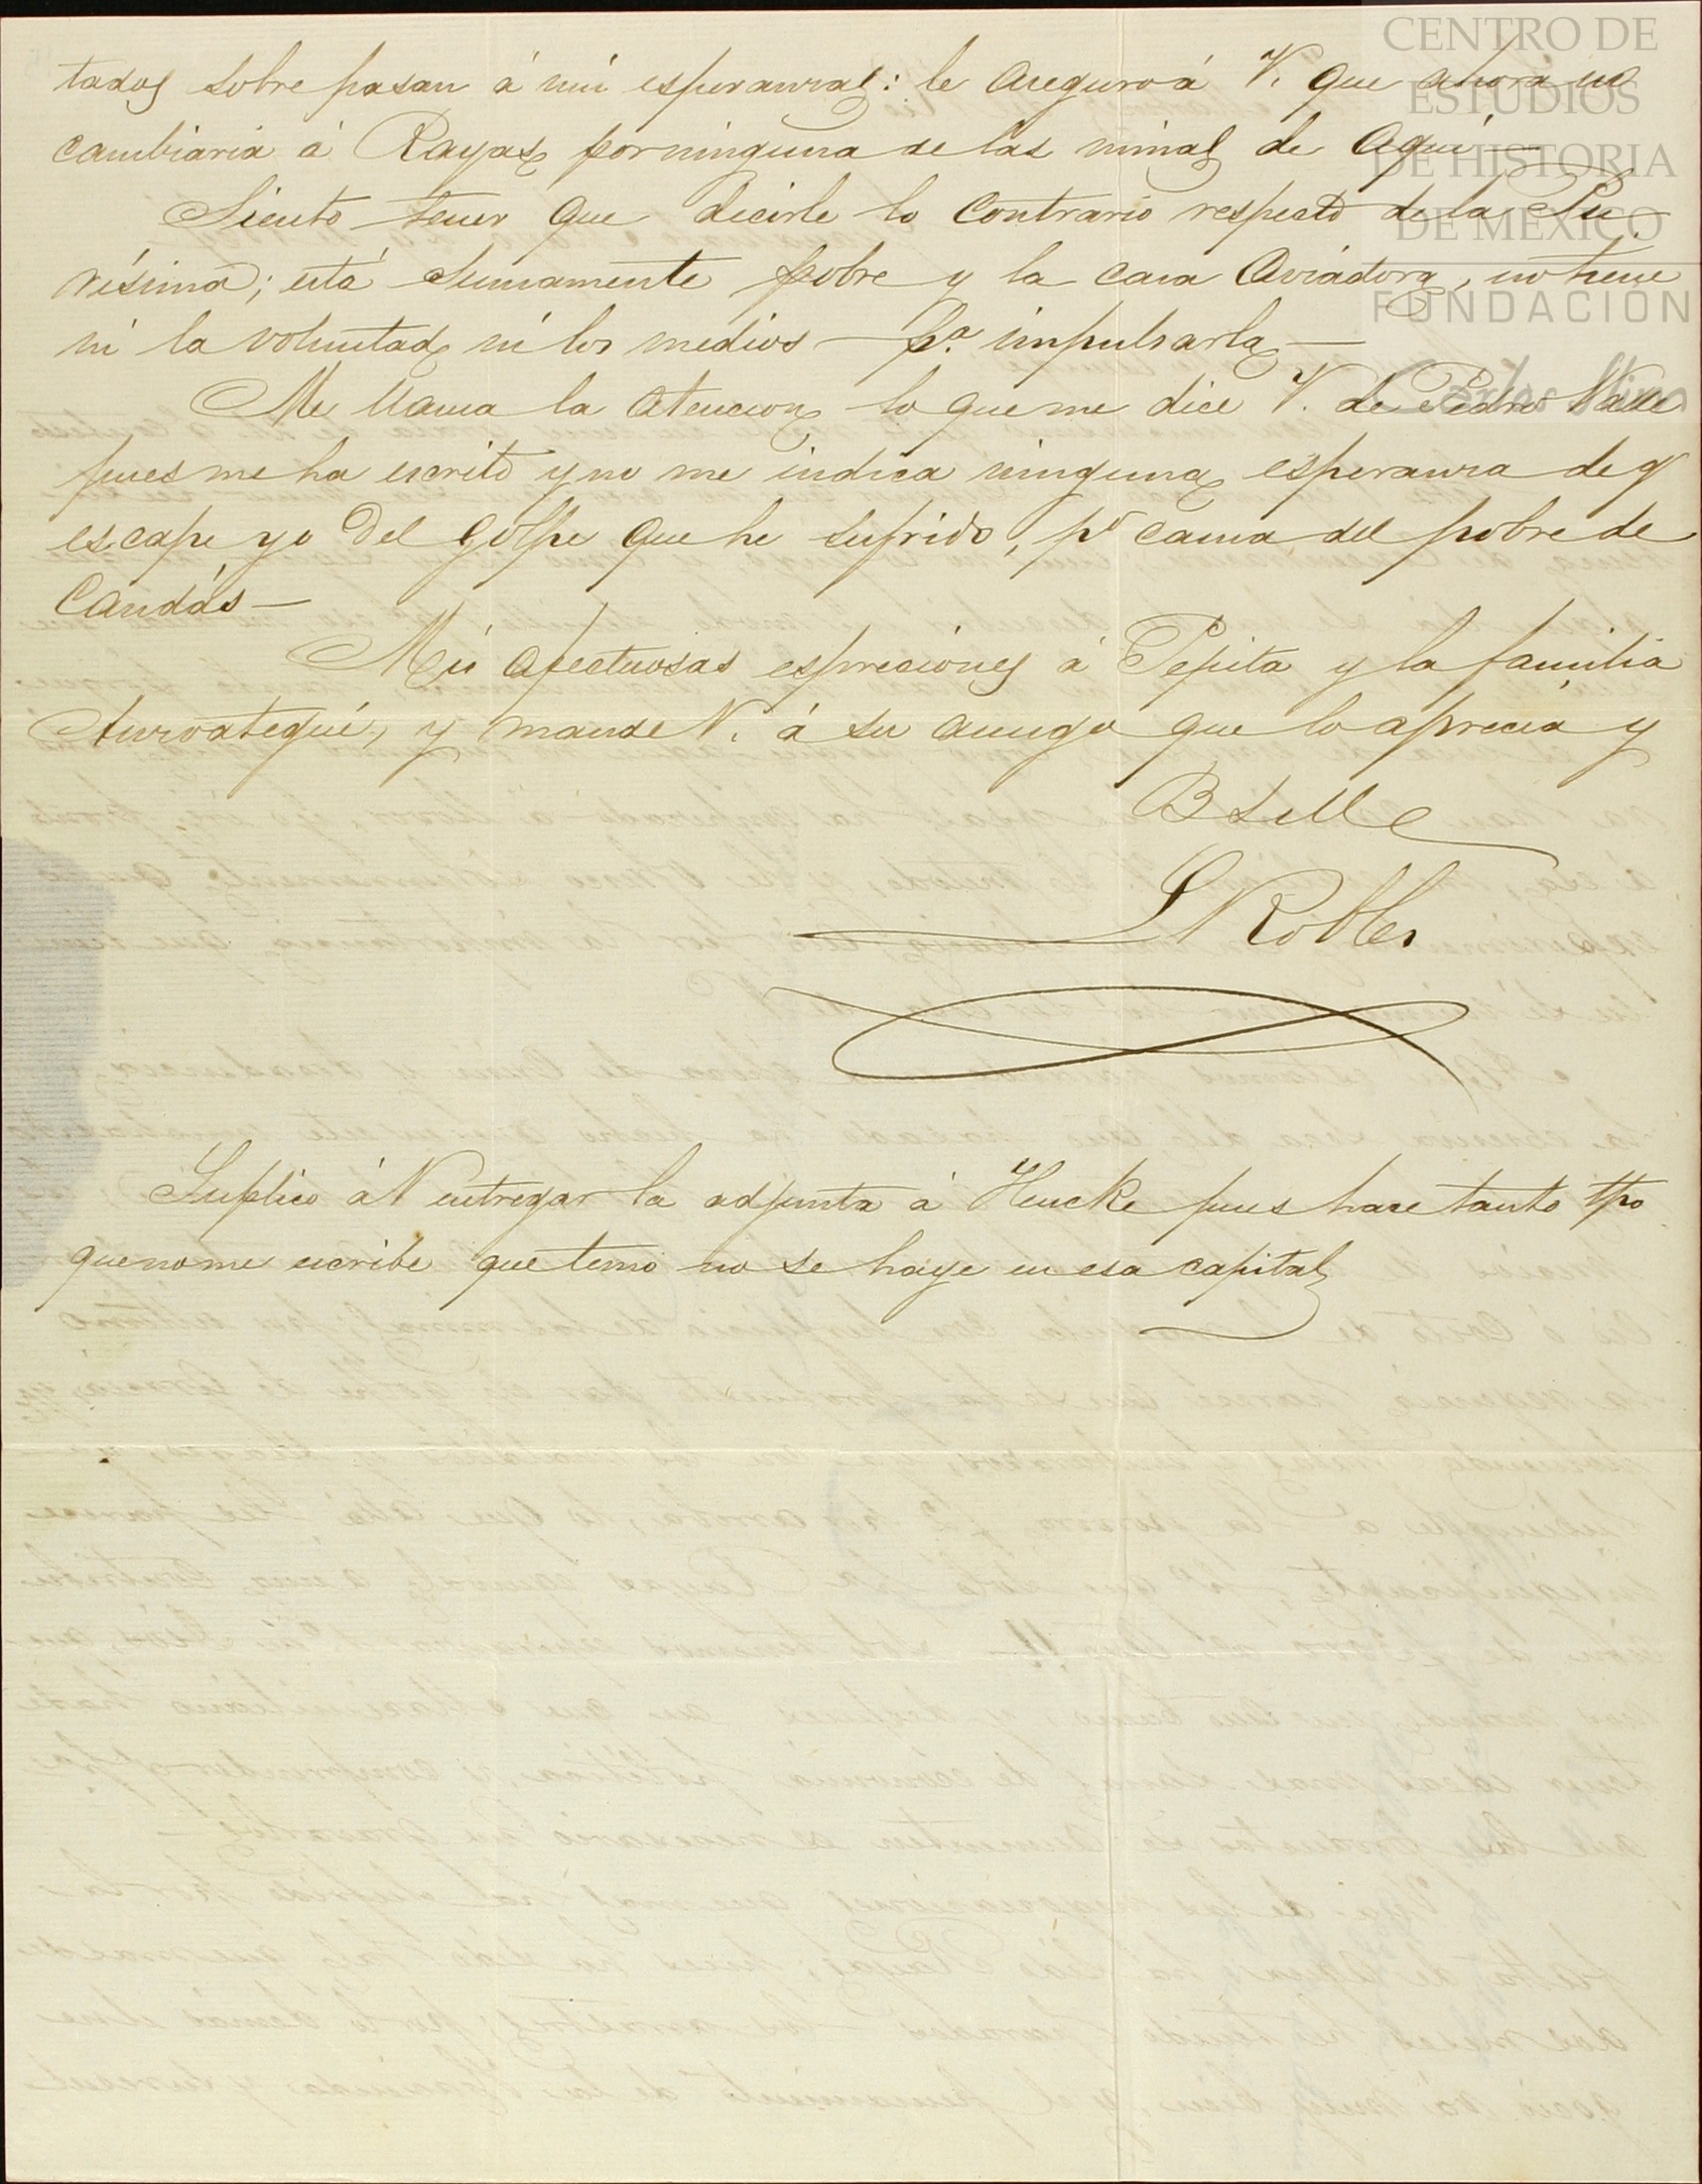 tados sobre pasan á mis esperanzas: le aseguro á V. que ahora no
cambiaria á Rayas por ninguna de las minas de Aqui —
Siento tener que decirle lo contrario respecto de la Pu-
rísima; está sumamente pobre y la casa Aviadora, no tiene
ni la voluntad ni los medios — pa. impulsarla —
Me llama la atencion lo que me dice V. de Pedro Valle
pues me ha escrito y no me indica ninguna esperanza de q
escape yo del golpe que he sufrido, pr causa del pobre de
Candás —
Mis afectuosas espreciones á Pepita y la familia
y mande V. á su amigo que lo aprecia y
B S M
L Robles
Suplico á V entregar la adjunta á Hencke pues hace tanto tpo
que no me escribe que temo no se haye en esa capital
CENTRO DE
ESTUDIOS
DE HISTORIA
DE MÉXICO
FUNDACIÓN
Carlos Slim